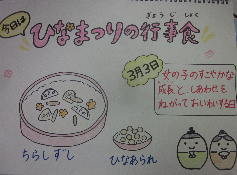 今日は
ひなまつりの行事食
ぎょうじしょく
3月3日
女の子のすこやかな
成長と、しあわせを
ねがっておいわいする日
ちらしずし
ひなあられ